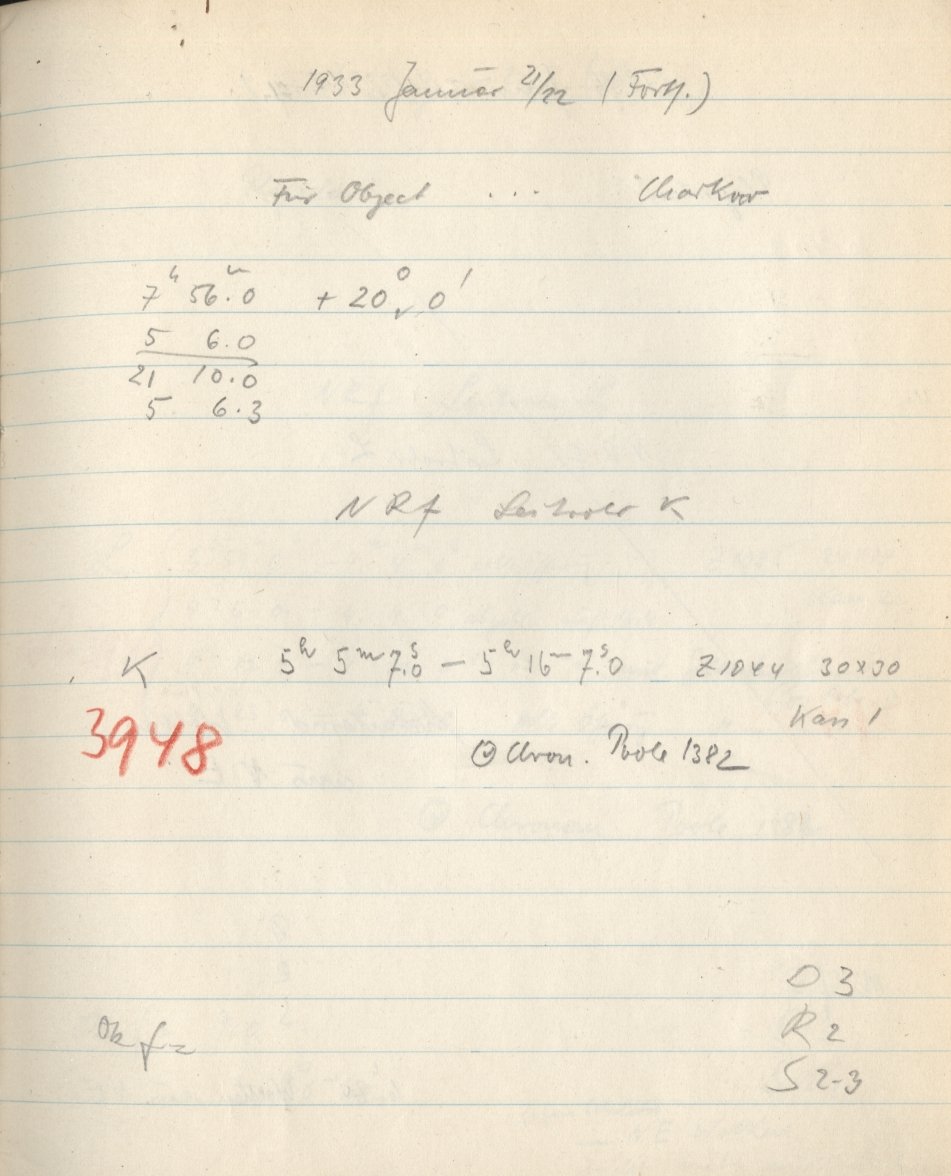 1933 Januar 21/22 (Forts.)
Für Object ... Charkow
7h 56m.0 + 20° 0'
5 6.0
21 10.0
5 6.3
NRf K
K 5h 5m 7s.0 — 5h 16m 7s.0 Z1044 30x30
Kass 1
3948 ⊙ Chron. Poole 1382
D 3
R 2
S 2-3